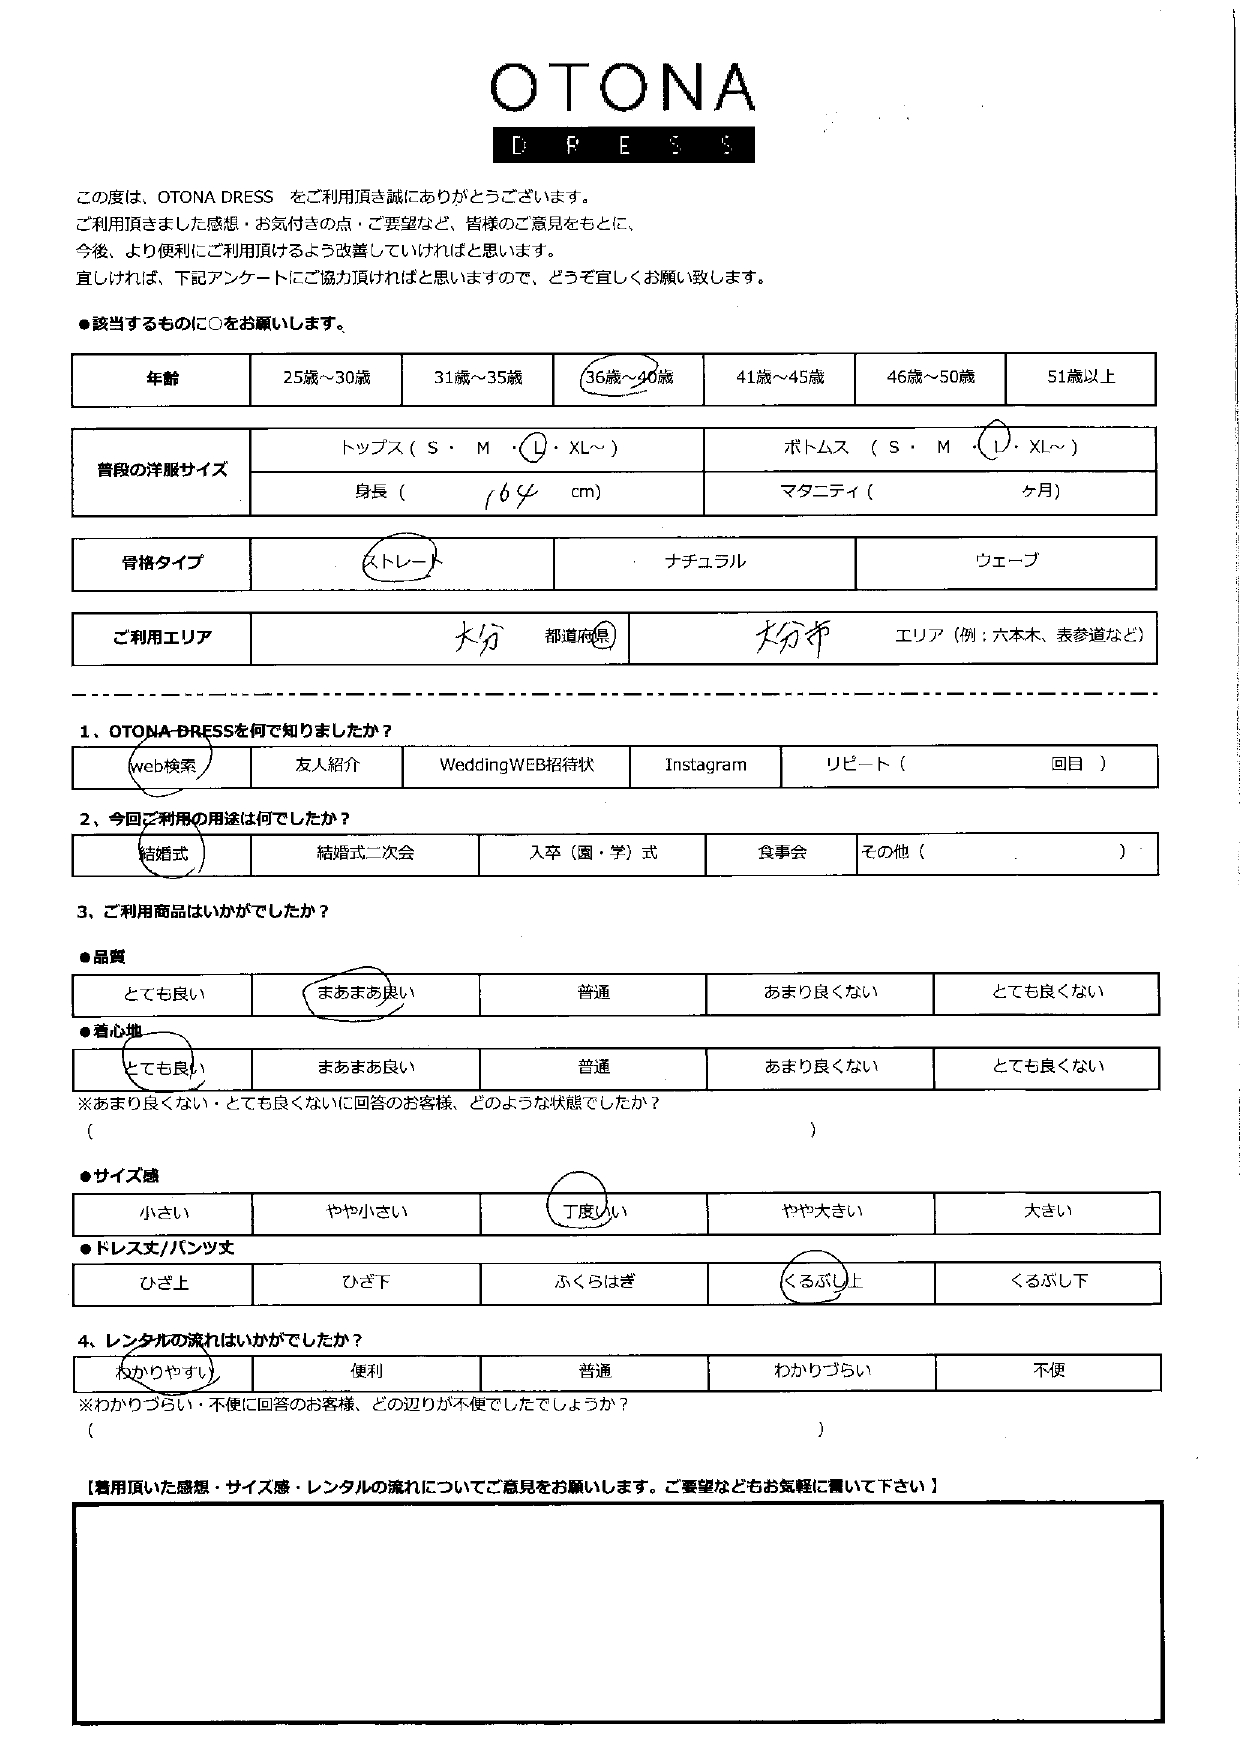 OTONA
DRESS
この度は、OTONA DRESS　をご利用頂き誠にありがとうございます。
ご利用頂きました感想・お気付きの点・ご要望など、皆様のご意見をもとに、
今後、より便利にご利用頂けるよう改善していければと思います。
宜しければ、下記アンケートにご協力頂ければと思いますので、どうぞ宜しくお願い致します。
●該当するものに○をお願いします。
年齢 25歳～30歳 31歳～35歳 36歳～40歳 41歳～45歳 46歳～50歳 51歳以上
普段の洋服サイズ トップス ( S ・ M ・ L ・ XL～ ) ボトムス ( S ・ M ・ L ・ XL～ )
身長 ( 164 cm) マタニティ ( ヶ月)
骨格タイプ ストレート ナチュラル ウェーブ
ご利用エリア 大分 都道府県 大分市 エリア（例；六本木、表参道など）
1、OTONA DRESSを何で知りましたか？
web検索 友人紹介 WeddingWEB招待状 Instagram リピート（ 回目 ）
2、今回ご利用の用途は何でしたか？
結婚式 結婚式二次会 入卒（園・学）式 食事会 その他（ ）
3、ご利用商品はいかがでしたか？
●品質
とても良い まあまあ良い 普通 あまり良くない とても良くない
●着心地
とても良い まあまあ良い 普通 あまり良くない とても良くない
※あまり良くない・とても良くないに回答のお客様、どのような状態でしたか？
( )
●サイズ感
小さい やや小さい 丁度いい やや大きい 大きい
●ドレス丈/パンツ丈
ひざ上 ひざ下 ふくらはぎ くるぶし上 くるぶし下
4、レンタルの流れはいかがでしたか？
わかりやすい 便利 普通 わかりづらい 不便
※わかりづらい・不便に回答のお客様、どの辺りが不便でしたでしょうか？
( )
【着用頂いた感想・サイズ感・レンタルの流れについてご意見をお願いします。ご要望などもお気軽に書いて下さい】